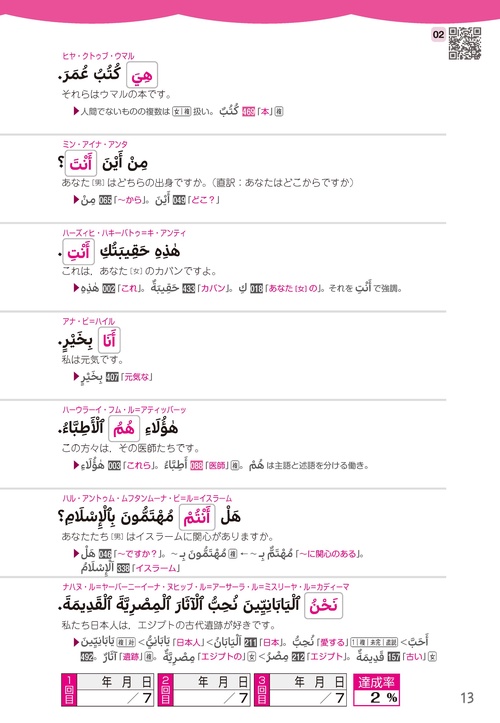 02
ヒヤ・クトゥブ・ウマル
هِيَ كُتُبُ عُمَرَ.
それらはウマルの本です。
▶人間でないものの複数は 女 複 扱い。 كُتُبٌ 469「本」複
ミン・アイナ・アンタ
مِنْ أَيْنَ أَنْتَ؟
あなた［男］はどちらの出身ですか。（直訳：あなたはどこからですか）
▶ مِنْ 065「〜から」。 أَيْنَ 049「どこ？」
ハーズィヒ・ハキーバトゥ＝キ・アンティ
هٰذِهِ حَقِيبَتُكِ أَنْتِ.
これは、あなた［女］のカバンですよ。
▶ هٰذِهِ 002「これ」。 حَقِيبَةٌ 433「カバン」。 كِ 018「あなた［女］の」。それを أَنْتِ で強調。
アナ・ビ＝ハイル
أَنَا بِخَيْرٍ.
私は元気です。
▶ بِخَيْرٍ 407「元気な」
ハーウラーイ・フム・ル＝アティッバーッ
هٰؤُلَاءِ هُمُ ٱلْأَطِبَّاءُ.
この方々は、その医師たちです。
▶ هٰؤُلَاءِ 003「これら」。 أَطِبَّاءُ 088「医師」複。 هُمْ は主語と述語を分ける働き。
ハル・アントゥム・ムフタンムーナ・ビ＝ル＝イスラーム
هَلْ أَنْتُمْ مُهْتَمُّونَ بِٱلْإِسْلَامِ؟
あなたたち［男］はイスラームに関心がありますか。
▶ هَلْ 046「〜ですか？」。 مُهْتَمُّونَ بِـ ~ 複 ← مُهْتَمٌّ بِـ ~「〜に関心のある」。
ٱلْإِسْلَامُ 338「イスラーム」
ナハヌ・ル＝ヤーバーニーイーナ・ヌヒッブ・ル＝アーサーラ・ル＝ミスリーヤ・ル＝カディーマ
نَحْنُ ٱلْيَابَانِيِّينَ نُحِبُّ ٱلْآثَارَ ٱلْمِصْرِيَّةَ ٱلْقَدِيمَةَ.
私たち日本人は、エジプトの古代遺跡が好きです。
▶ يَابَانِيِّينَ 複 対 < يَابَانِيٌّ「日本人」< ٱلْيَابَانُ 211「日本」。 نُحِبُّ「愛する」1 複 未完 直説 < أَحَبَّ
492。 آثَارٌ「遺跡」複。 مِصْرِيَّةٌ「エジプトの」女 < مِصْرُ 212「エジプト」。 قَدِيمَةٌ 157「古い」女
1回目 年 月 日 ／7 2回目 年 月 日 ／7 3回目 年 月 日 ／7 達成率 2 %
13